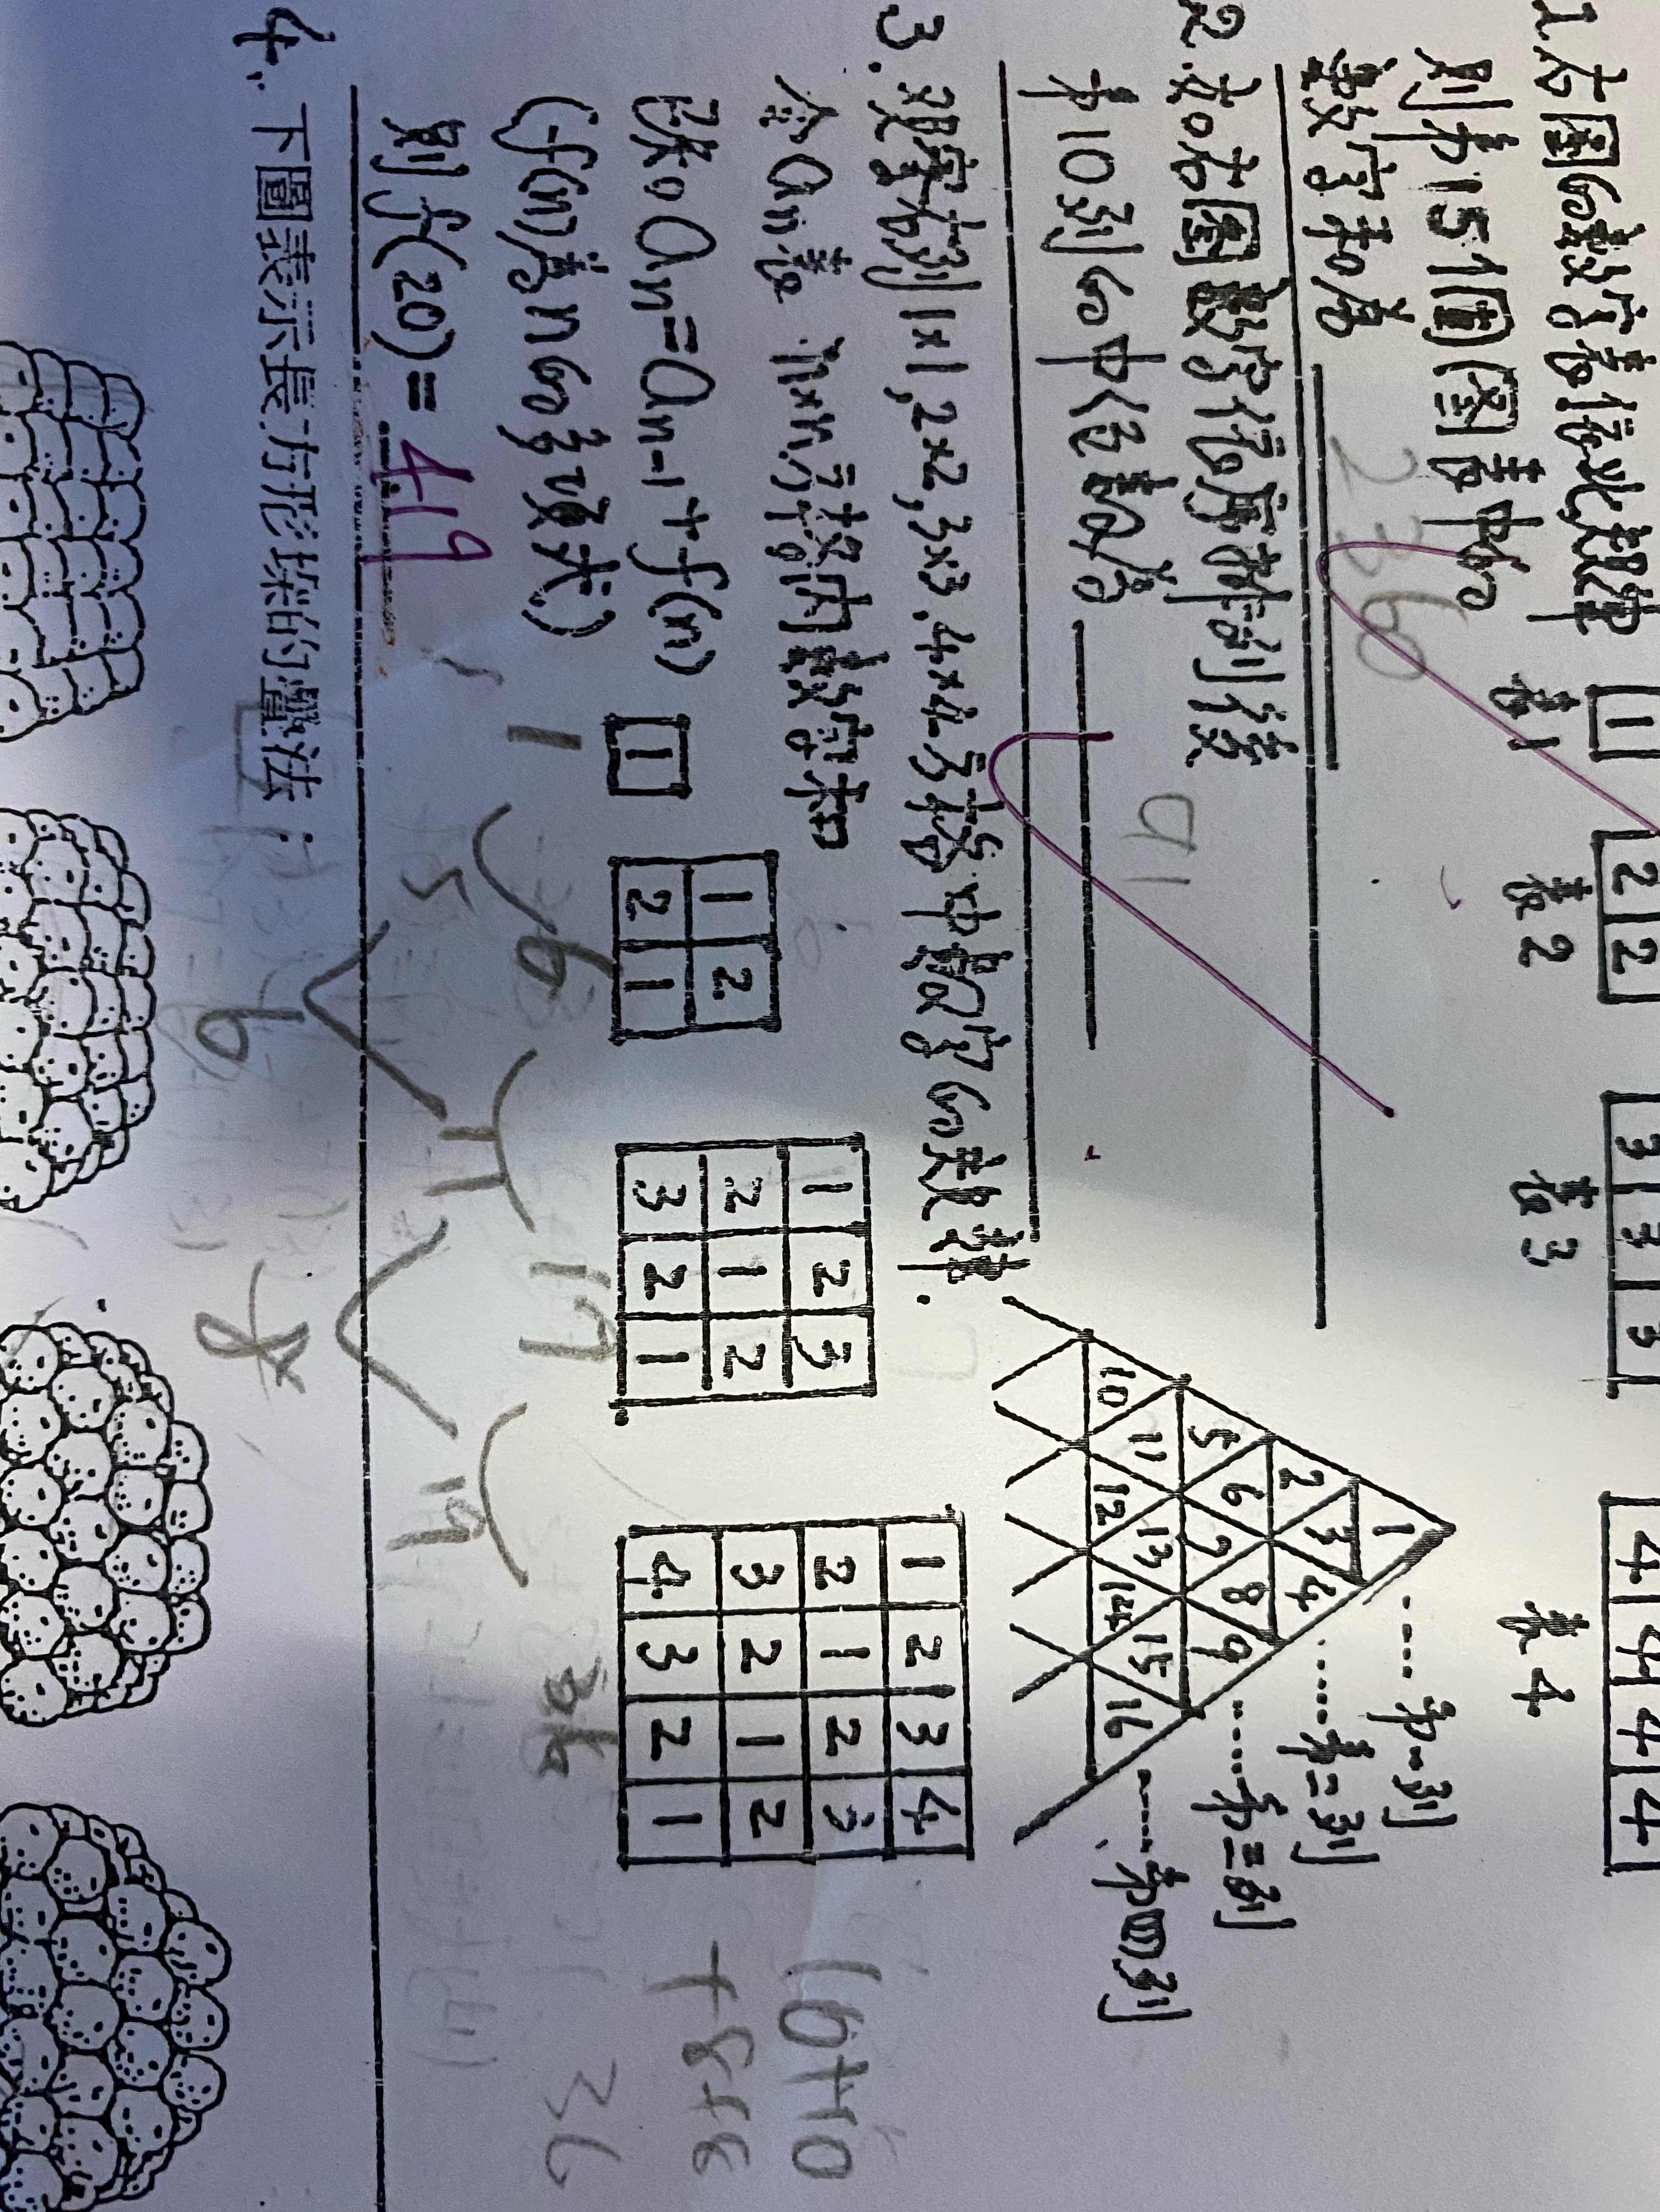 1.右圖的數字表依此規律
則第15個(圖)表中的
數字和為 2360
1
2 2
3 3 3
4 4 4 4
表1
表2
表3
表4
2.如右圖數字依序排列後
第10列的中位數為 91
1 ---- 第一列
2 3 4 ----- 第二列
5 6 7 8 9 ----- 第三列
10 11 12 13 14 15 16 ---- 第四列
3.觀察右列1×1,2×2,3×3.4×4方格中數字的規律.
令an表 n×n方格內數字和
已知。an=an-1+f(n)
(f(n)為n的多項式)
則f(20)= 419
1
1 2
2 1
1 2 3
2 1 2
3 2 1
1 2 3 4
2 1 2 3
3 2 1 2
4 3 2 1
1 6 17
5 11
36
4. 下圖表示長方形垛的疊法：